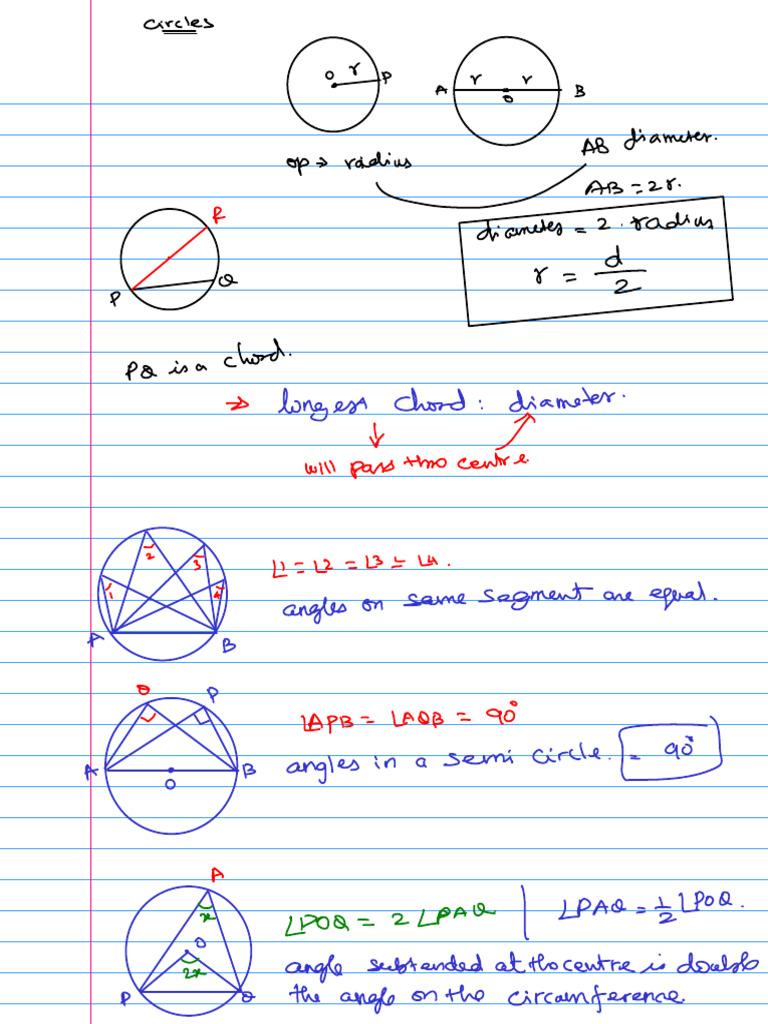 Circles
O r P
A r r B
O
OP → radius
AB diameter.
AB = 2r.
diameter = 2 . radius
r = d/2
R
P Q
PQ is a chord.
⇒ longest chord : diameter.
will pass thro centre.
1 2 3 4
A B
∠1 = ∠2 = ∠3 = ∠4.
angles on same segment are equal.
Q P
A B
O
∠APB = ∠AQB = 90°
angles in a semi circle. = 90°
A
x
O
2x
P Q
∠POQ = 2∠PAQ | ∠PAQ = 1/2 ∠POQ.
angle subtended at the centre is double
the angle on the circumference.